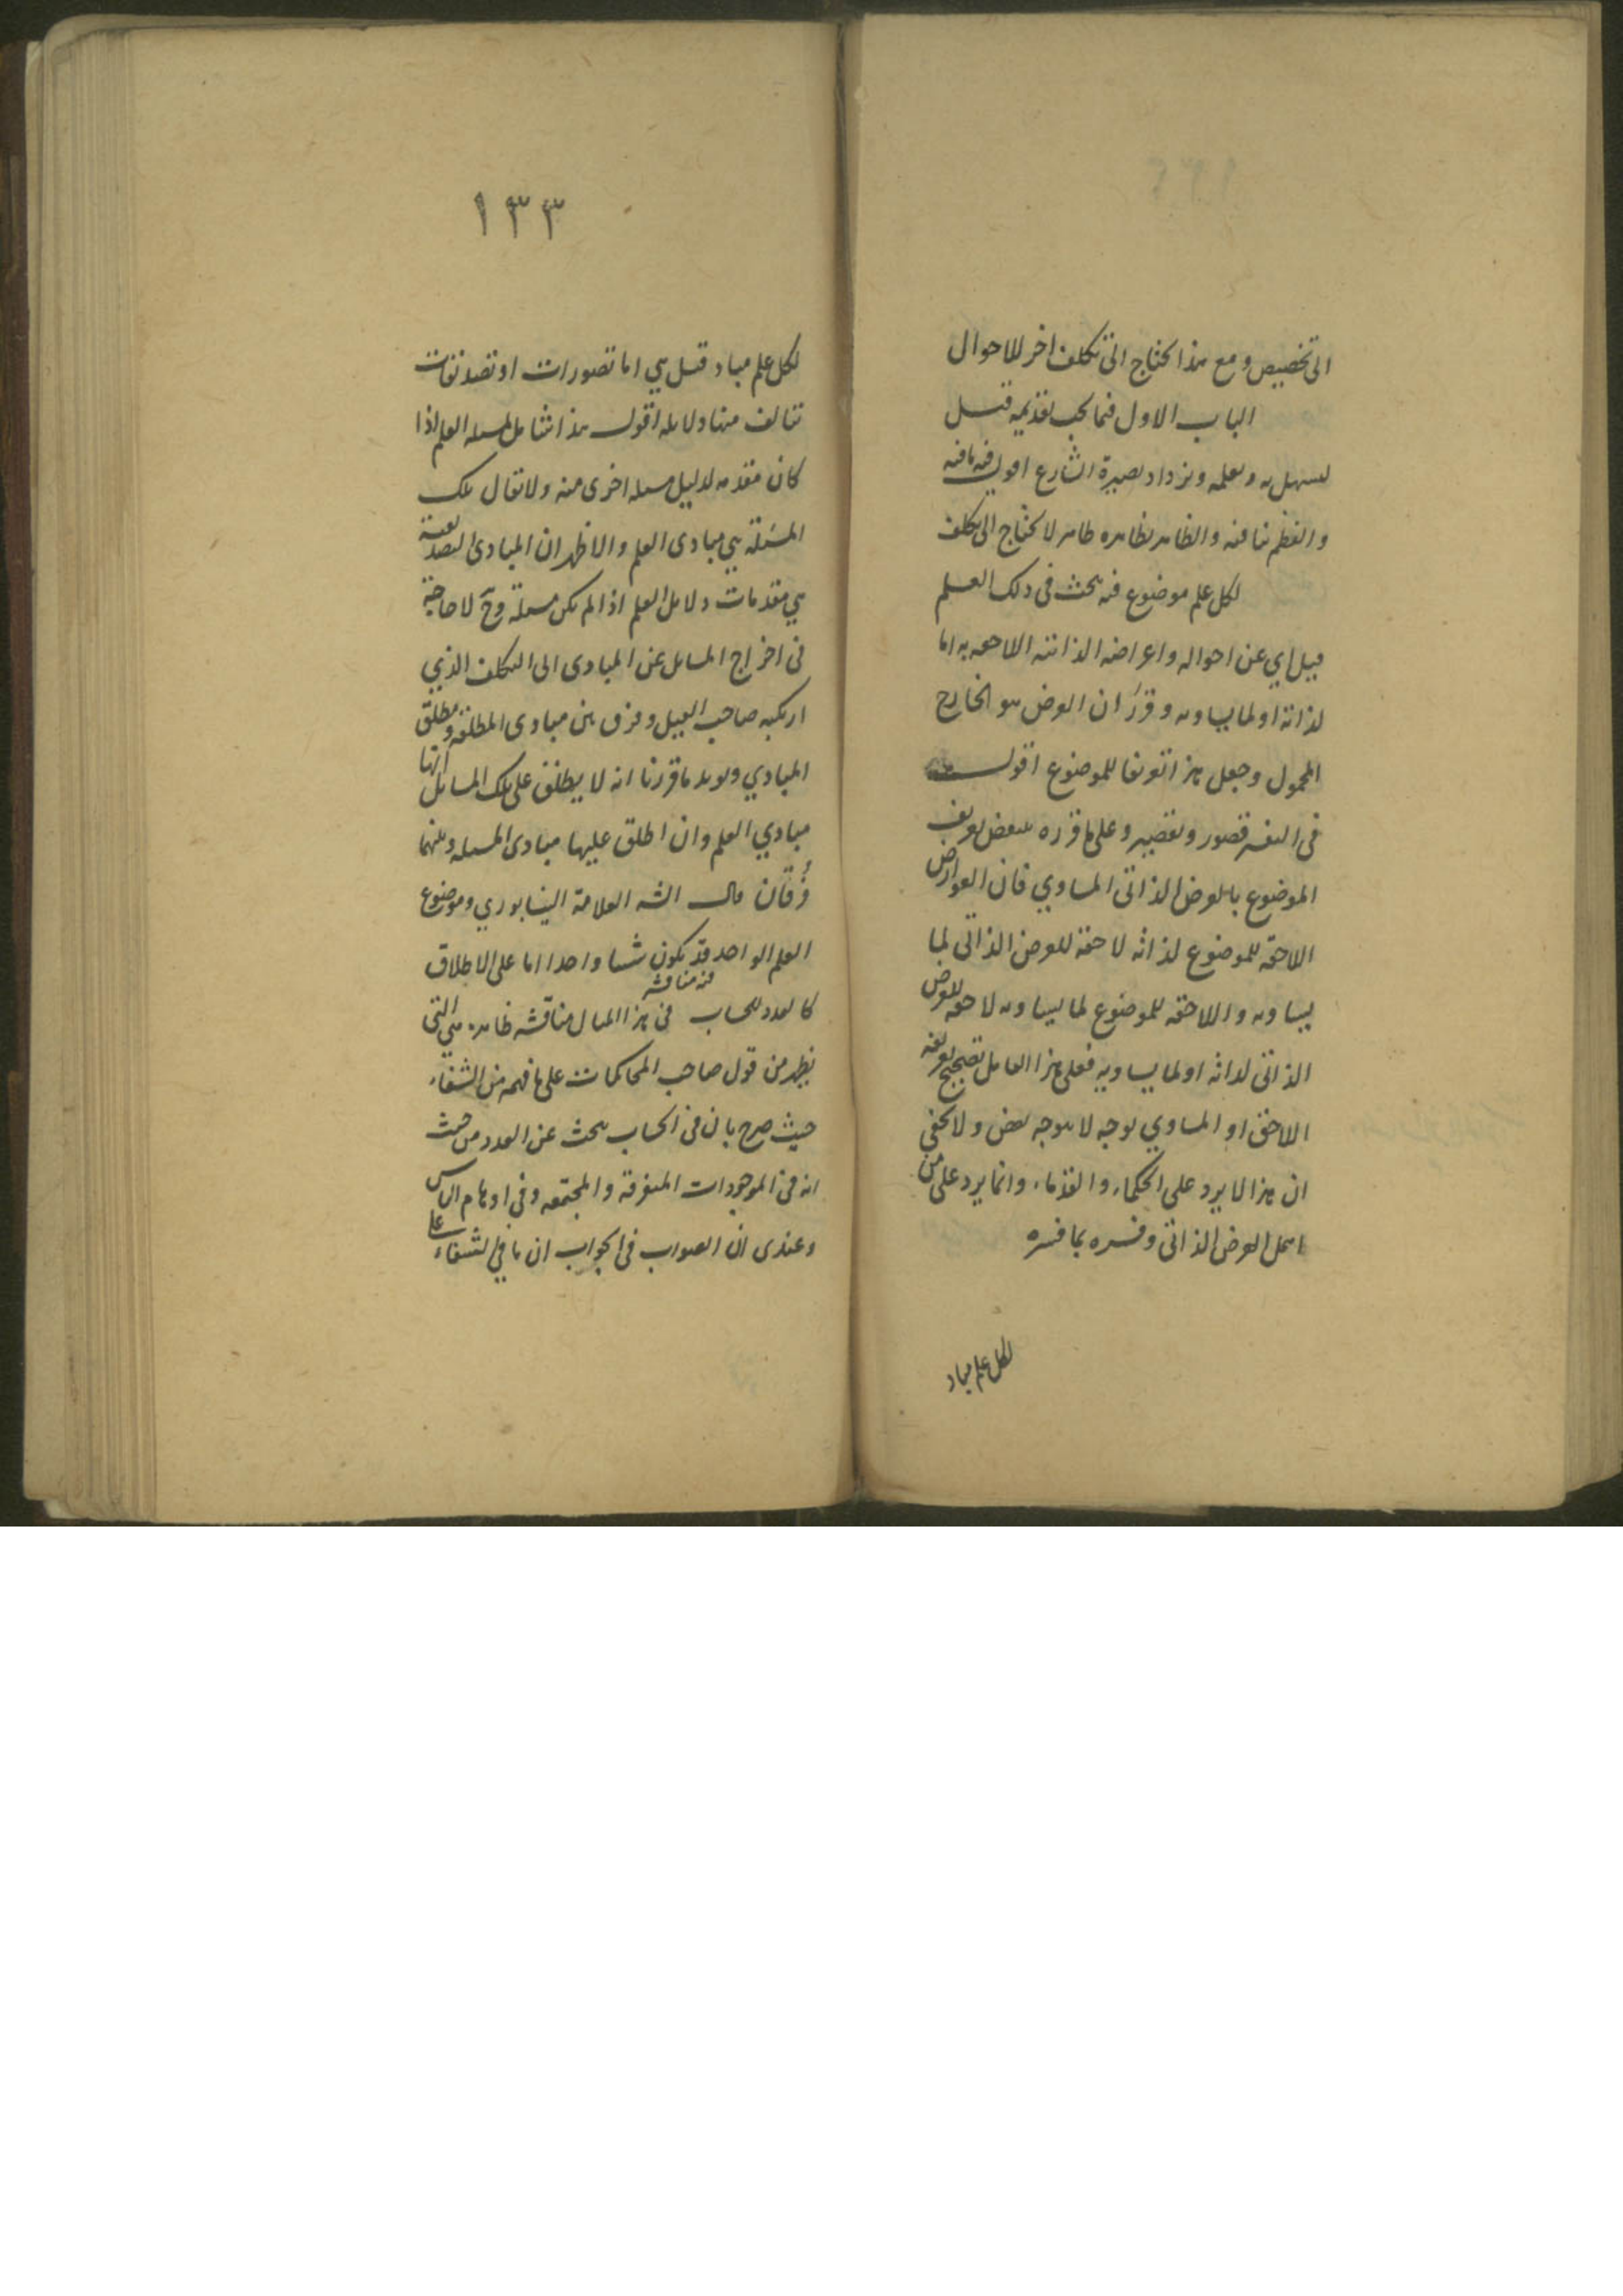 الى تخصيص ومع هذا يحتاج الى تكلف اخر للاحوال
الباب الاول فيما يجب تقديمه قيل
ليسهل به وتعلمه ويزداد بصيرة الشارع اقول فيه ما فيه
والنظم ينافيه والظاهر بظاهره ظاهر لا يحتاج الى تكلف
لكل علم موضوع فيه يبحث فى ذلك العلم
قيل اي عن احواله واعراضه الذاتية اللاحقة به اما
لذاته او لما يساويه وقرر ان العرض هو الخارج
المحمول وجعل هذا تعريفا للموضوع اقول
فى التفسير قصور وتقصير وعلى ما قرره ينتقض بعرض
الموضوع بالعرض الذاتى المساوي فان العوارض
اللاحقة للموضوع لذاته لاحقة للعرض الذاتى لما
يساويه واللاحقة للموضوع لما يساويه لاحقة للعرض
الذاتى لذاته او لما يساويه فعلى هذا القائل تصحيح تعريفه
اللاحق او المساوي بوجه لا بوجه بعض ولا يخفى
ان هذا لا يرد على الحكماء والقدماء وانما يرد على من
اهمل العرض الذاتى وفسره بما فسره
لكل علم مباد
١٣٣
لكل علم مباد قيل هي اما تصورات او تصديقات
تتالف منها دلايله اقول هذا شامل لمسئلة العلم اذا
كان مقدمه لدليل مسئلة اخرى منه ولا يقال تلك
المسئلة هي مبادى العلم والاظهر ان المبادى التصديقية
هي مقدمات دلايل العلم اذا لم يكن مسئلة وح لا حاجة
فى اخراج المسايل عن المبادى الى التكلف الذي
ارتكبه صاحب القيل وفرق بين مبادى المطلقة ومطلق
المبادي ويويد ما قررنا انه لا يطلق على تلك المسائل انها
مبادي العلم وان اطلق عليها مبادى المسئلة وبينهما
فرقان قال الشه العلامة النيسابوري وموضوع
العلم الواحد قد يكون شيئا واحدا اما على الاطلاق
كالعدد للحساب فى هذا المثال مناقشة ظاهرة هي التى
فيه مناقشه
يظهر من قول صاحب المحاكمات على ما فهمه من الشفاء
حيث صرح بان فى الحساب يبحث عن العدد من حيث
انه فى الموجودات المتفرقة والمجتمعه وفى اوهام الناس
وعندى ان الصواب فى الجواب ان ما فى الشفاء على